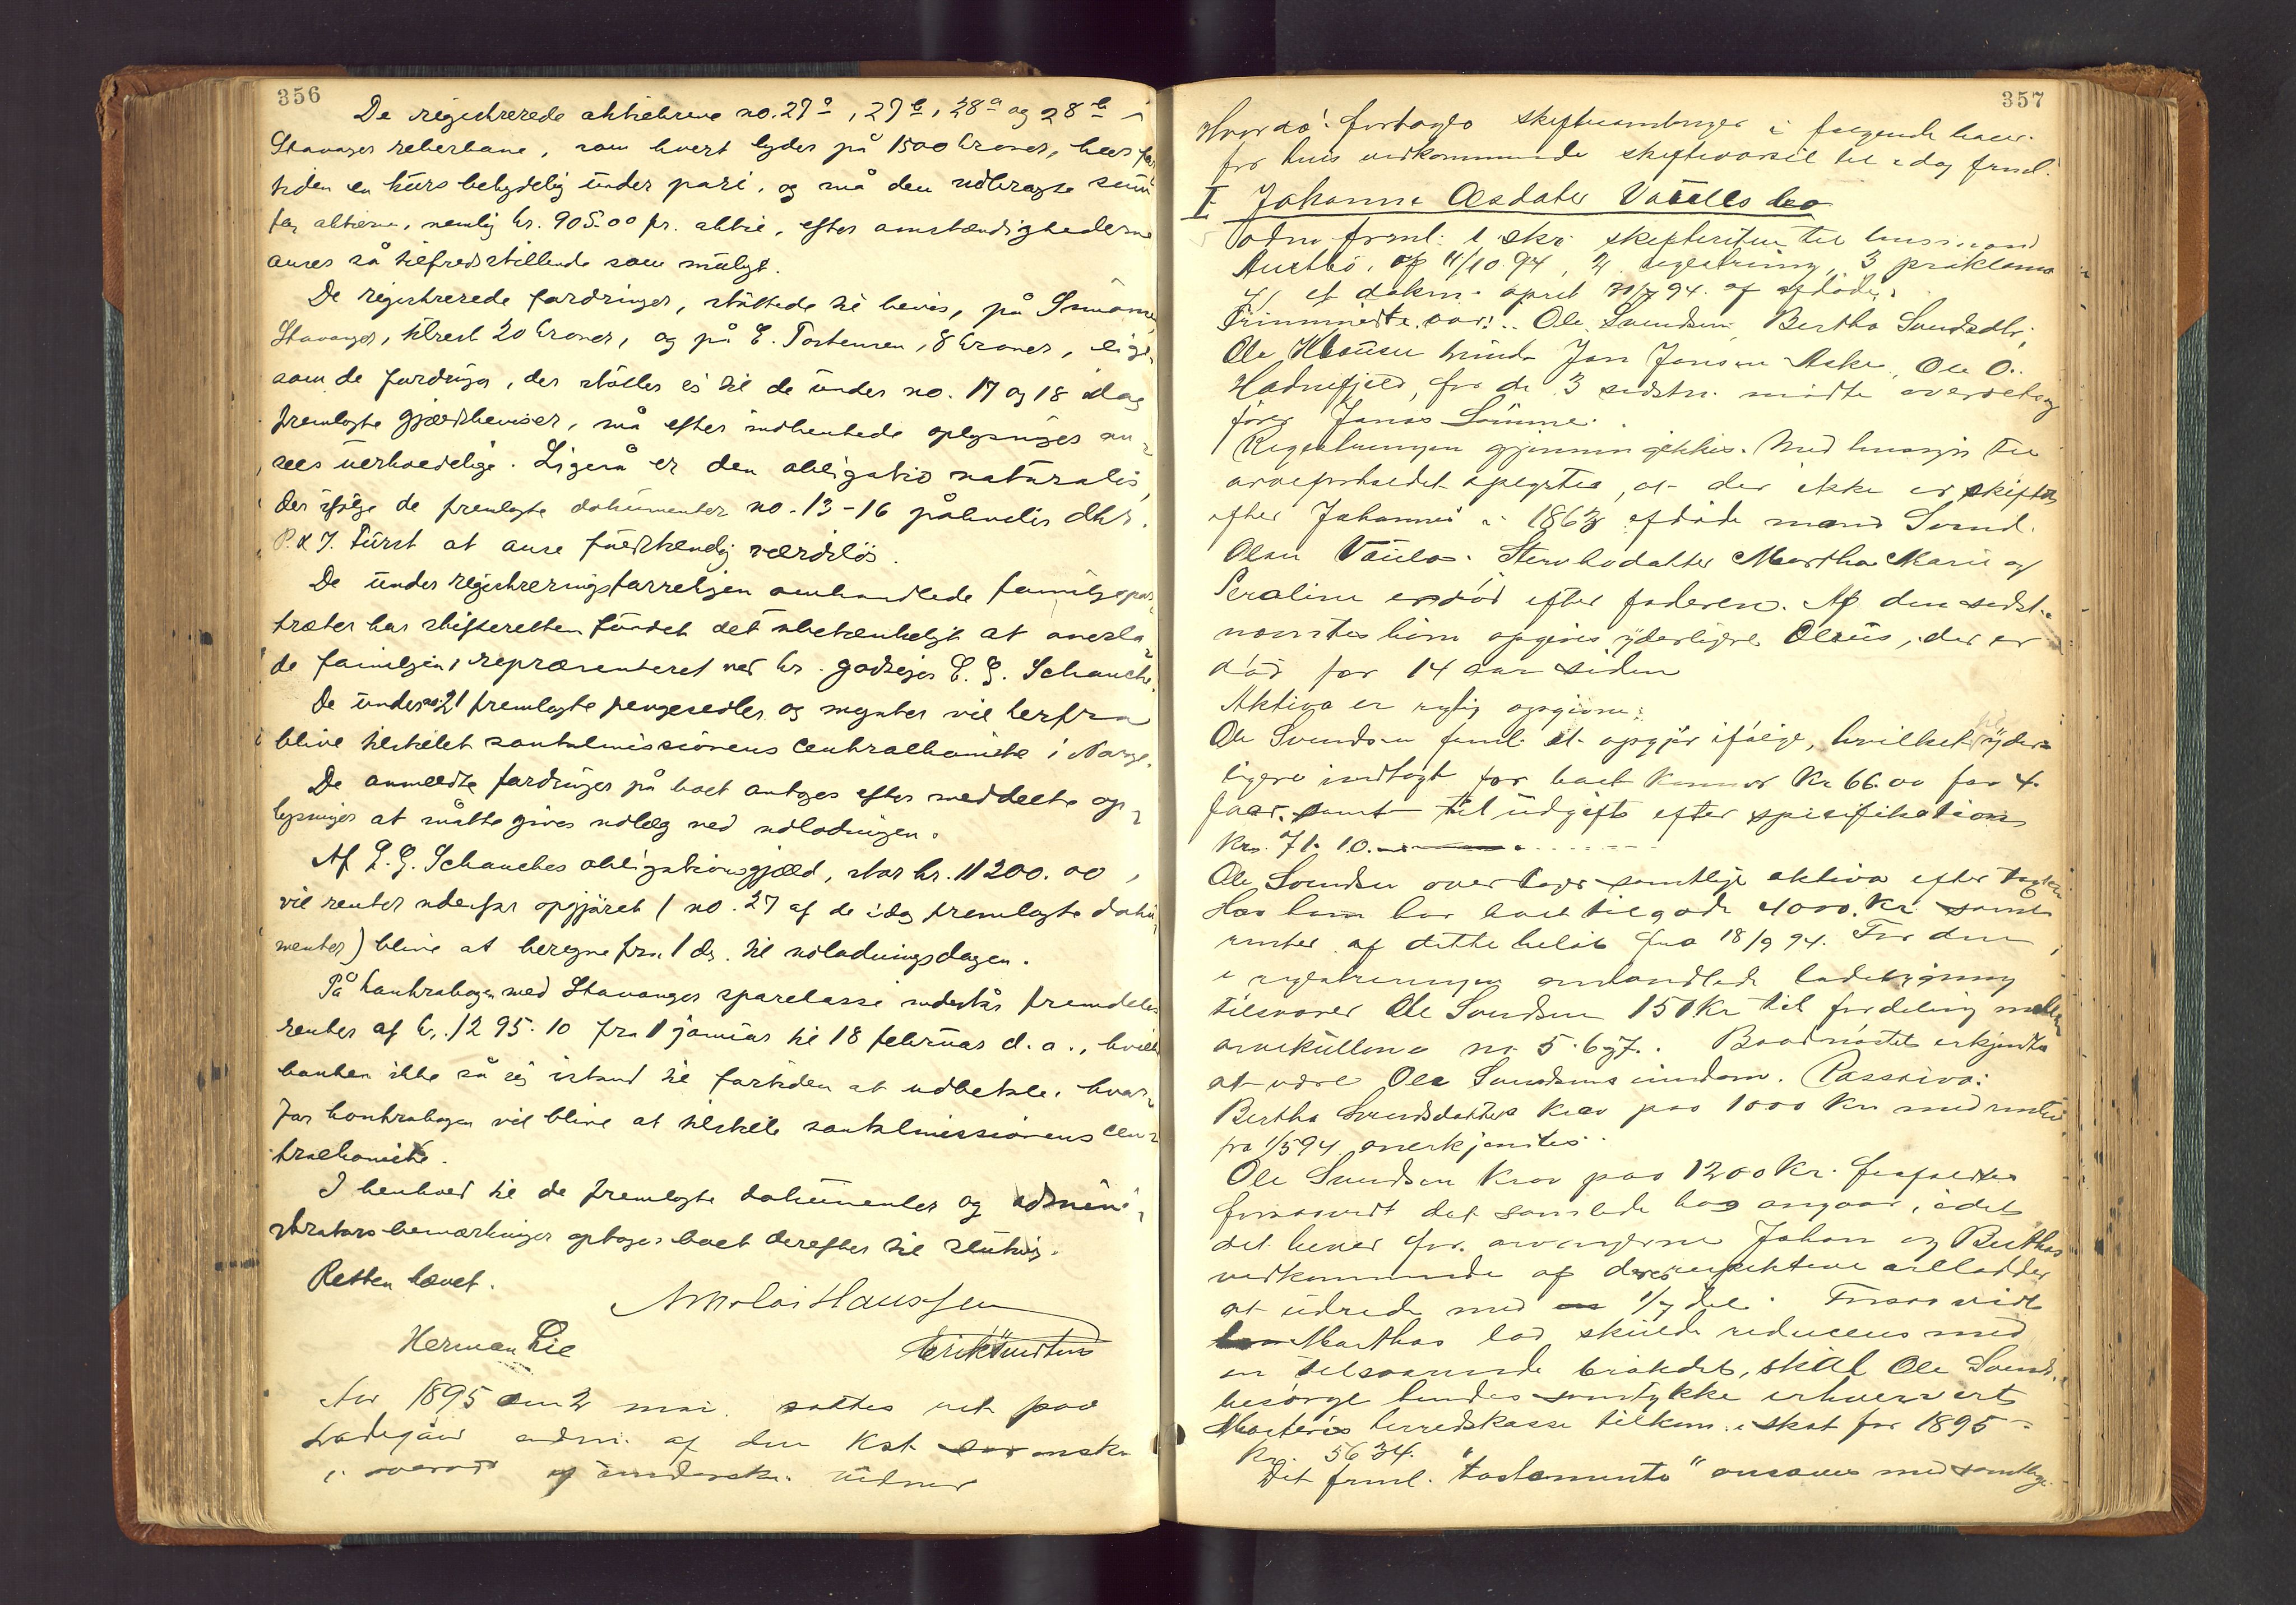 356
De registrerede aktiebreve no. 27a, 27b, 28a og 28b i
Stavanger reberbane, som hvert lyder på 1500 kroner, har for
tiden en kurs betydelig under pari, og må den udbragte sum
for aktierne, nemlig kr. 905.00 pr. aktie, efter omstændighederne
anses så tilfredsstillende som muligt.
De registrerede fordringer, støttede til bevis, på
Stavanger, tilrest 20 kroner, og på E. Torstensen, 8 kroner, lige-
som de fordringer, der støtter sig til de under no. 17 og 18 idag
fremlagte gjældsbeviser, må efter indhentede oplysninger an-
sees uerholdelige. Ligeså er den obligatio naturalis,
der ifølge de fremlagte dokumenter no. 13-16 påhviler dhr.
P. & J. Fürst at anse fuldstændig værdiløs.
De under registreringsforretningen omhandlede familjepor-
træter har skifteretten fundet det ubetænkeligt at overla-
de familjen, repræsenteret ved hr. godseier E. G. Schanche.
De under no 21 fremlagte pengesedler og mynter vil herfra
blive tilstillet santalmissionens centralkomite i Norge.
De anmeldte fordringer på boet antages efter meddelte op-
lysninger at måtte gives udlæg ved udlodningen.
Af E. G. Schanches obligationsgjæld, stor kr. 11200.00,
vil renter udenfor opgjøret (no. 27 af de idag fremlagte doku-
menter) blive at beregne fra 1 ds. til udlodningsdagen.
På kontrabogen med Stavanger sparekasse indestår fremdeles
renter af kr. 1295.10 fra 1 januar til 18 februar d. a., hvilke
banken ikke så sig istand til fortiden at udbetale, hvor-
for kontrabogen vil blive at tilstille santalmissionens cen-
tralkomite.
I henhold til de fremlagte dokumenter og admini-
strators bemærkninger optages boet derefter til slutning.
Retten hævet.
Nikolai Hanssen
Herman Lie
Aar 1895 den 2 mai sattes ret paa
Ladegård adm. af den kst.
og underskr. vidner
357
Hvorda fortoges skiftesamlinger i følgende boer
for hvis vedkommende skiftevarsel til idag freml.
I Johanne Olsdater Vaulls bo
Adm freml: 1 skr. skifteretten til lensmand
Austbö, af 11/10.94, 2 registrering, 3 proklama
4, et dokm. opret 21/7 94. af afdøde.
Fremmødte var: Ole Svendsen, Bertha Svendsdtr,
Ole Jon Jonsen Aske, Ole O.
Hadnefjeld, for de 3 sidstn. mødte overretssag
fører Jonas Lömme.
Registreringen gjennemgikkes. Med hensyn til
arveforholdet oplystes, at der ikke er skiftet
efter Johannes i 1863 afdøde mand Svend
Olsen Vaula. Stervbodatter Martha Marie og
Seraline er død efter faderen. Af den sidst-
nævntes børn opgives yderligere Olaus, der er
død for 14 aar siden
Aktiva er rigtig opgivne.
Ole Svendsen freml. et opgjør ifølge hvilket yder-
ligere indtægt for boet kommer Kr 66.00 for 4
faar. samt til udgift efter spesifikation
Kr. 71.10.
Ole Svendsen overtager samtlige aktiva efter taxten
Hos ham har boet tilgode 4000 Kr. samt
renter af dette beløb fra 18/9 94. For den
i registreringen omhandlede ladebygning
tilsvarer Ole Svendsen 150 Kr til fordeling mellem
arvekullene no 5. 6 og 7. Baadnøstet erkjendtes
at være Ole Svendsens eiendom. Passiva:
Bertha Svendsdatters krav paa 1000 Kr med renter
fra 1/5 94 anerkjendtes.
Ole Svendsen krav paa 1200 Kr. frafaldtes
forsaavidt det samlede bo angaar, idet
det bliver for arvingerne Johan og Berthas
vedkommende af deres respektive arvelodder
at udrede med 1/7 del. Forsaavidt
Marthas lod skulde reduceres med
en tilsvarende brøkdel, skal Ole Svends.
besørge hendes samtykke erhvervet
Mosterø herredskasse tilkom. i skat for 1895
Kr. 5634.
Det freml. "testamente" ansaaes med samtlige